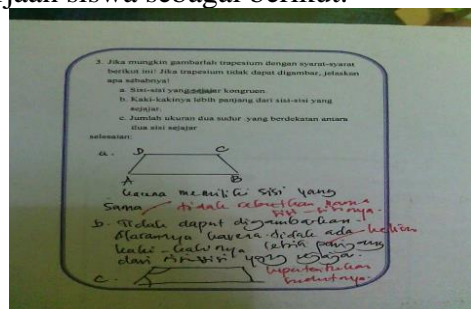 jaan siswa sebagai berikut.
3. Jika mungkin gambarlah trapesium dengan syarat-syarat
berikut ini! Jika trapesium tidak dapat digambar, jelaskan
apa sebabnya!
a. Sisi-sisi yang sejajar kongruen.
b. Kaki-kakinya lebih panjang dari sisi-sisi yang
sejajar.
c. Jumlah ukuran dua sudur yang berdekatan antara
dua sisi sejajar
selesaian:
a. D C
A B
karena memiliki sisi yang
sama tidak sebutkan nama
sisi-sisinya.
b. Tidak dapat digambarkan
karena tidak ada
kaki-kakinya lebih panjang
dari sisi-sisi yang sejajar.
c.
sudutnya.